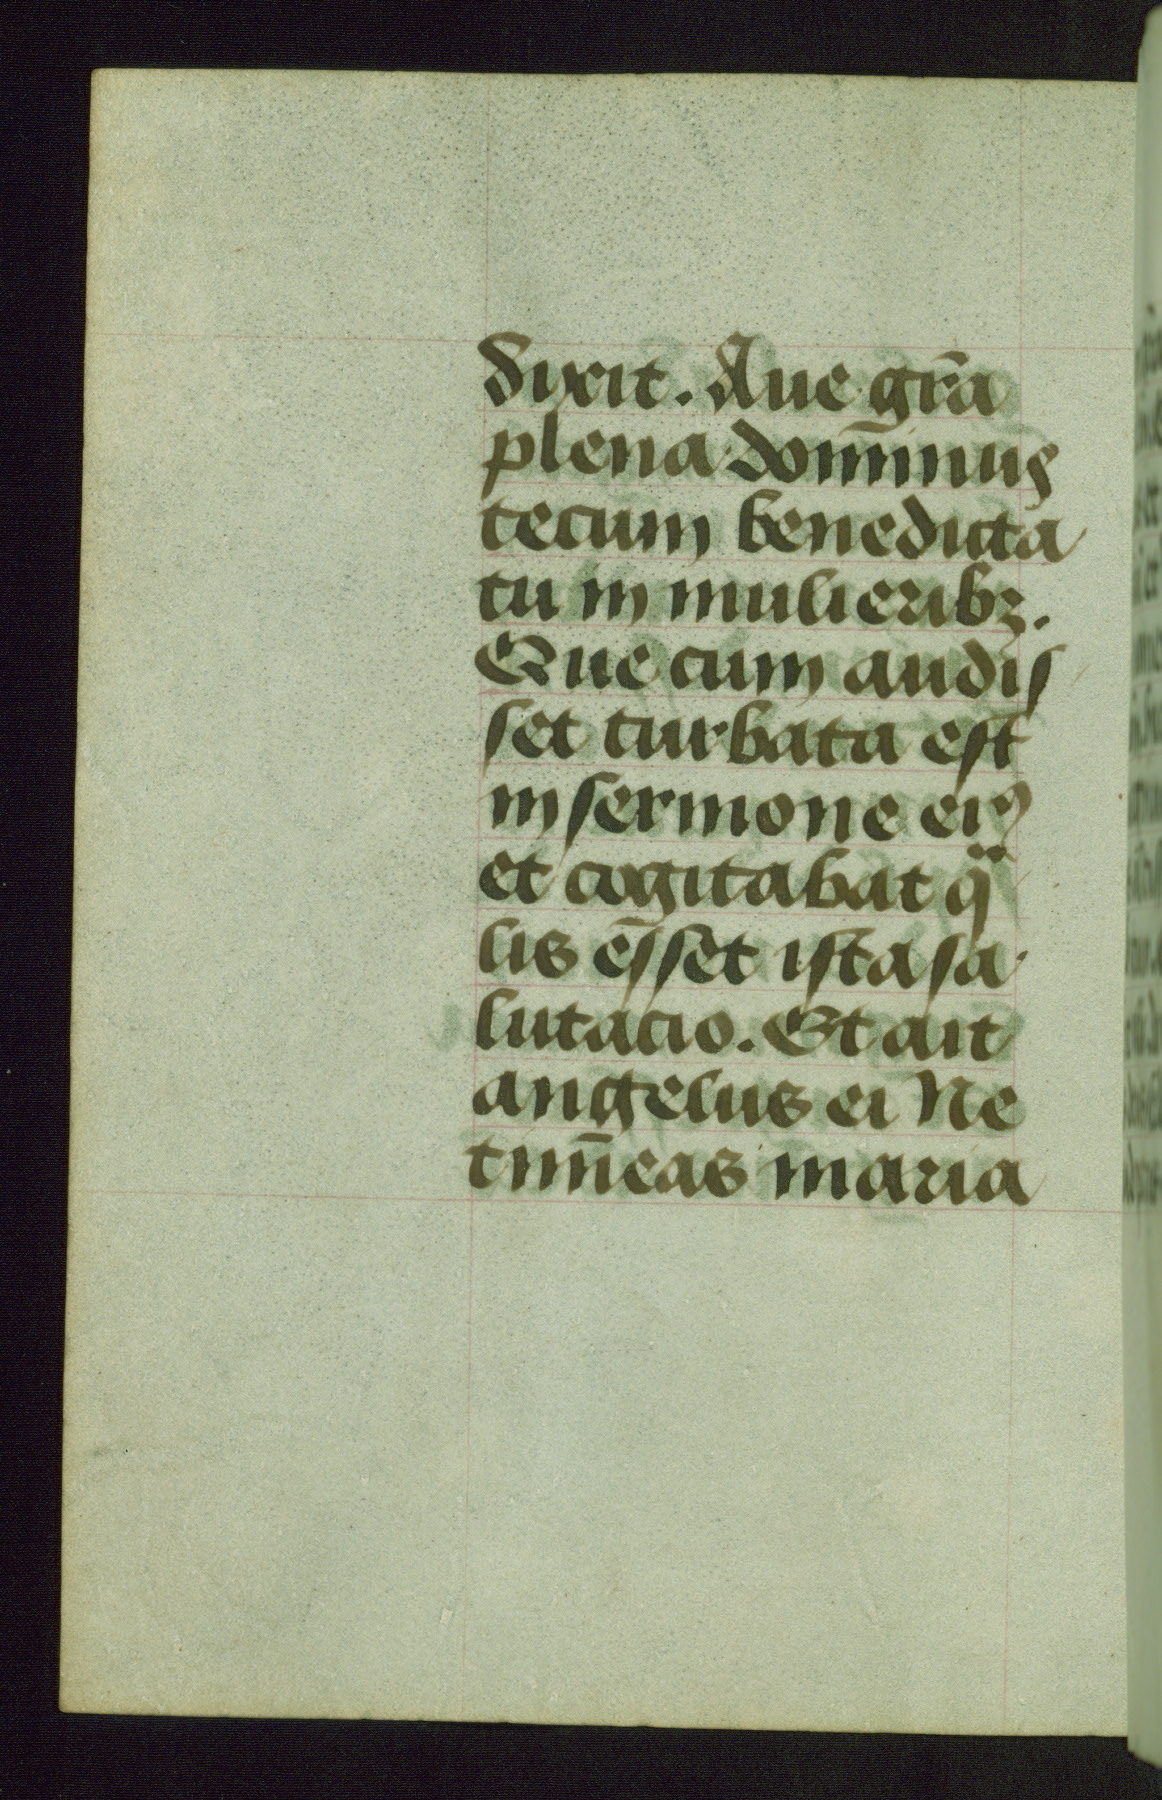 dixit. Aue gr̄a
plena dom̄inus
tecum benedicta
tu in mulieribꝫ.
Que cum audis
set turbata est
in sermone eiꝰ
et cogitabat q̈
lis ēsset ista sa
lutacio. Et ait
angelus ei Ne
tim̄eas maria